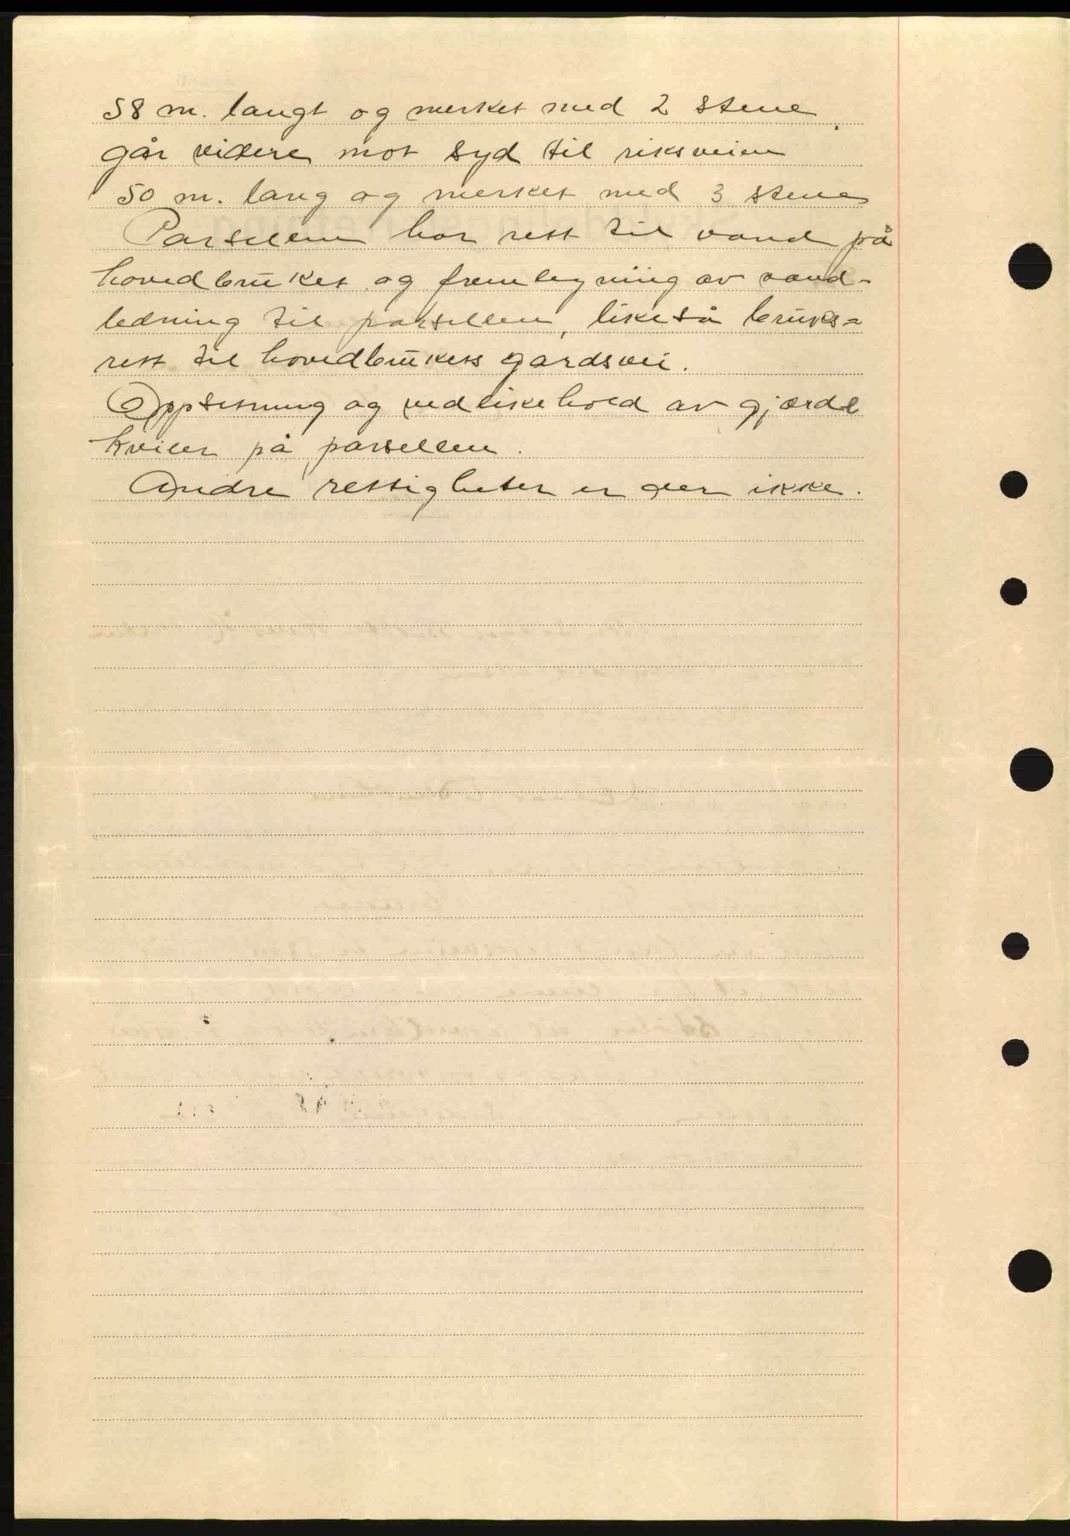 58 m. langt og merket med 2 stene.
går videre mot syd til riksveien
50 m. lang og merket med 3 stene
Parsellen har rett til vand på
hovedbruket og fremleyning av vand-
ledning til parsellen, likeså bruks=
rett til hovedbrukets gardsvei.
Oppsetning og vedlikehold av gjærde
kviler på parsellen.
Andre rettigheter er der ikke.